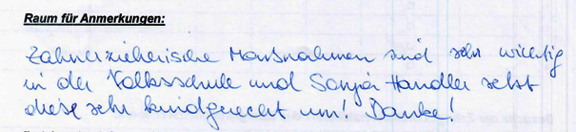 Raum für Anmerkungen:
Zahnerzieherische Maßnahmen sind sehr wichtig
in der Volksschule und Sonja Handler setzt
diese sehr kindgerecht um! Danke!